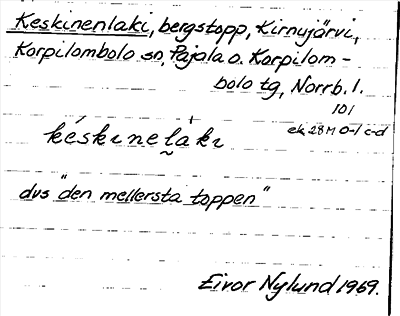 Keskinenlaki, bergstopp, Kirnujärvi,
Korpilombolo sn, Pajala o. Korpilom-
bolo tg, Norrb. l.
101
ek 28M 0-1 c-d
késkınelákı
dvs "den mellersta toppen"
Eivor Nylund 1969.